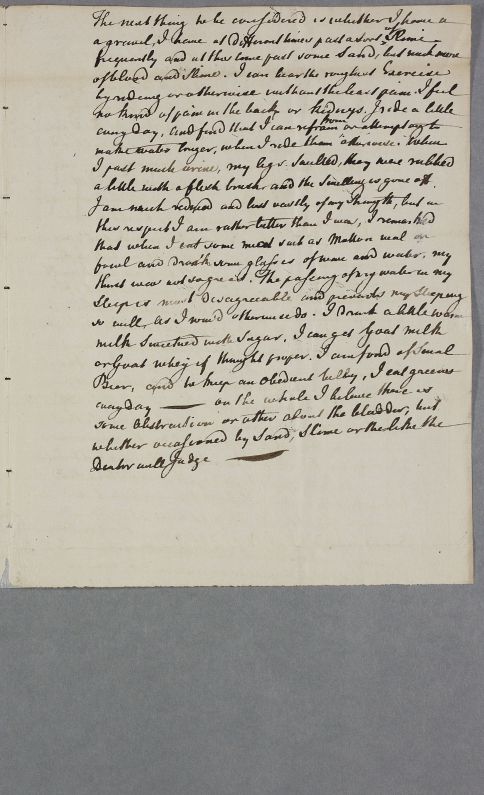 The next thing to be considered is whether I have a
a gravel, I have at Different times past a sort of Slime
frequently and at this time past some Sand, but much more
of blood and Slime. I can bear the roughest Exercise
by rideing or otherwise without the least pain. I feel
no kind of pain in the back or Kidneys. I ride a little
every Day, and find that I can refrain from or attempting to
make water longer, when I ride than otherwise. When
I past much urine, my legs swelled, they were rubbed
a little with a flesh brush and the Swelling is gone off.
I am much reduced and lost vastly of my Strength, but in
this respect I am rather better than I was, I remarked
that when I eat some meat such as Mutton veal or
fowl and drank some glasses of wine and water, my
thirst was not so great. The passing of my water in my
Sleep is most Disagreeable and prevents my Sleeping
so well, as I wou'd otherwise do. I Drank a little warm
milk Sweetned with Sugar, I can get Goat milk
or Goat whey if thought proper. I am fond of Small
Beer, and to keep an obedient belly, I eat greens
every day — on the whole I believe there is
some Obstruction or other about the bladder, but
whether occasioned by Sand, Slime or the like the
Doctor will Judge —